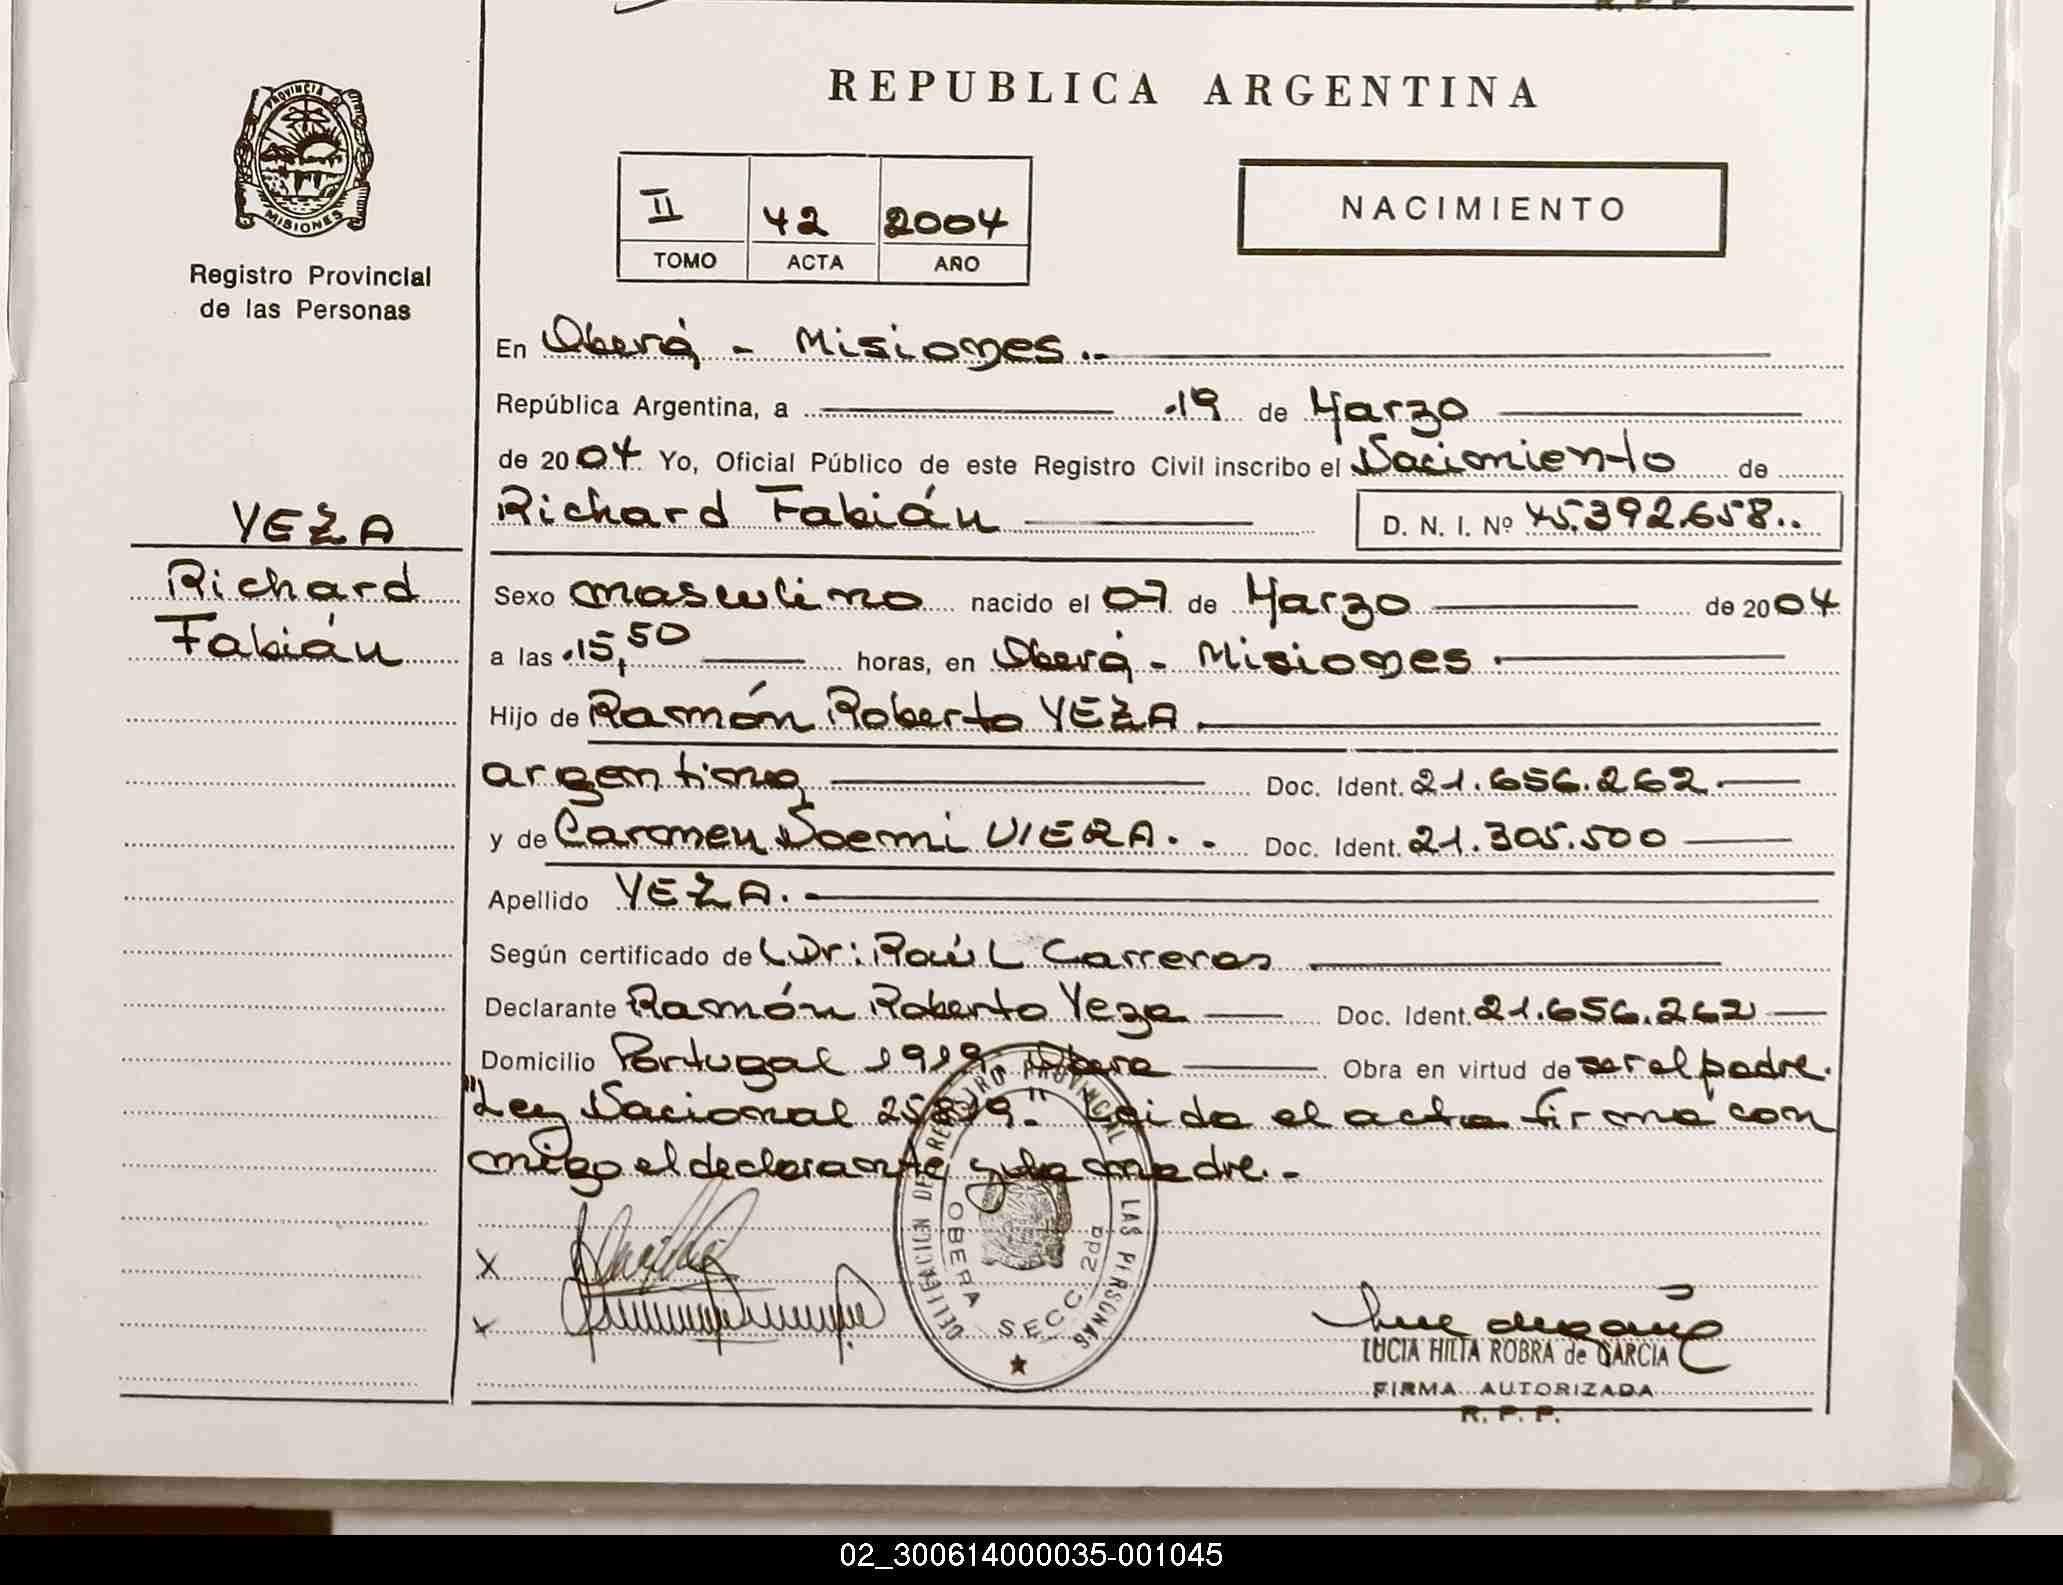 REPUBLICA ARGENTINA
PROVINCIA D
MISIONES
Registro Provincial
de las Personas
II 42 2004
TOMO ACTA AÑO
NACIMIENTO
En Oberá - Misiones.-
República Argentina, a 19 de Marzo
de 2004 Yo, Oficial Público de este Registro Civil inscribo el Nacimiento de
YEZA
Richard
Fabián
Richard Fabián D. N. I. Nº 45.392.658..
Sexo masculino nacido el 07 de Marzo de 2004
a las 15,50 horas, en Oberá - Misiones.
Hijo de Ramón Roberto YEZA.
argentino Doc. Ident. 21.656.262.
y de Carmen Noemi VIERA. - Doc. Ident. 21.305.500
Apellido YEZA.
Según certificado de Dr: Raúl Carreras
Declarante Ramón Roberto Yeza Doc. Ident. 21.656.262
Domicilio Portugal 1919 Obera Obra en virtud de ser el padre.
"Ley Nacional 25819." Leida el acta firma con
migo el declarante y la madre.-
X
x
DELEGACION DEL REGISTRO PROVINCIAL LAS PERSONAS
OBERA SECC. 2da
LUCIA HILTA ROBRA de GARCIA
FIRMA AUTORIZADA
R. P. P.
02_300614000035-001045